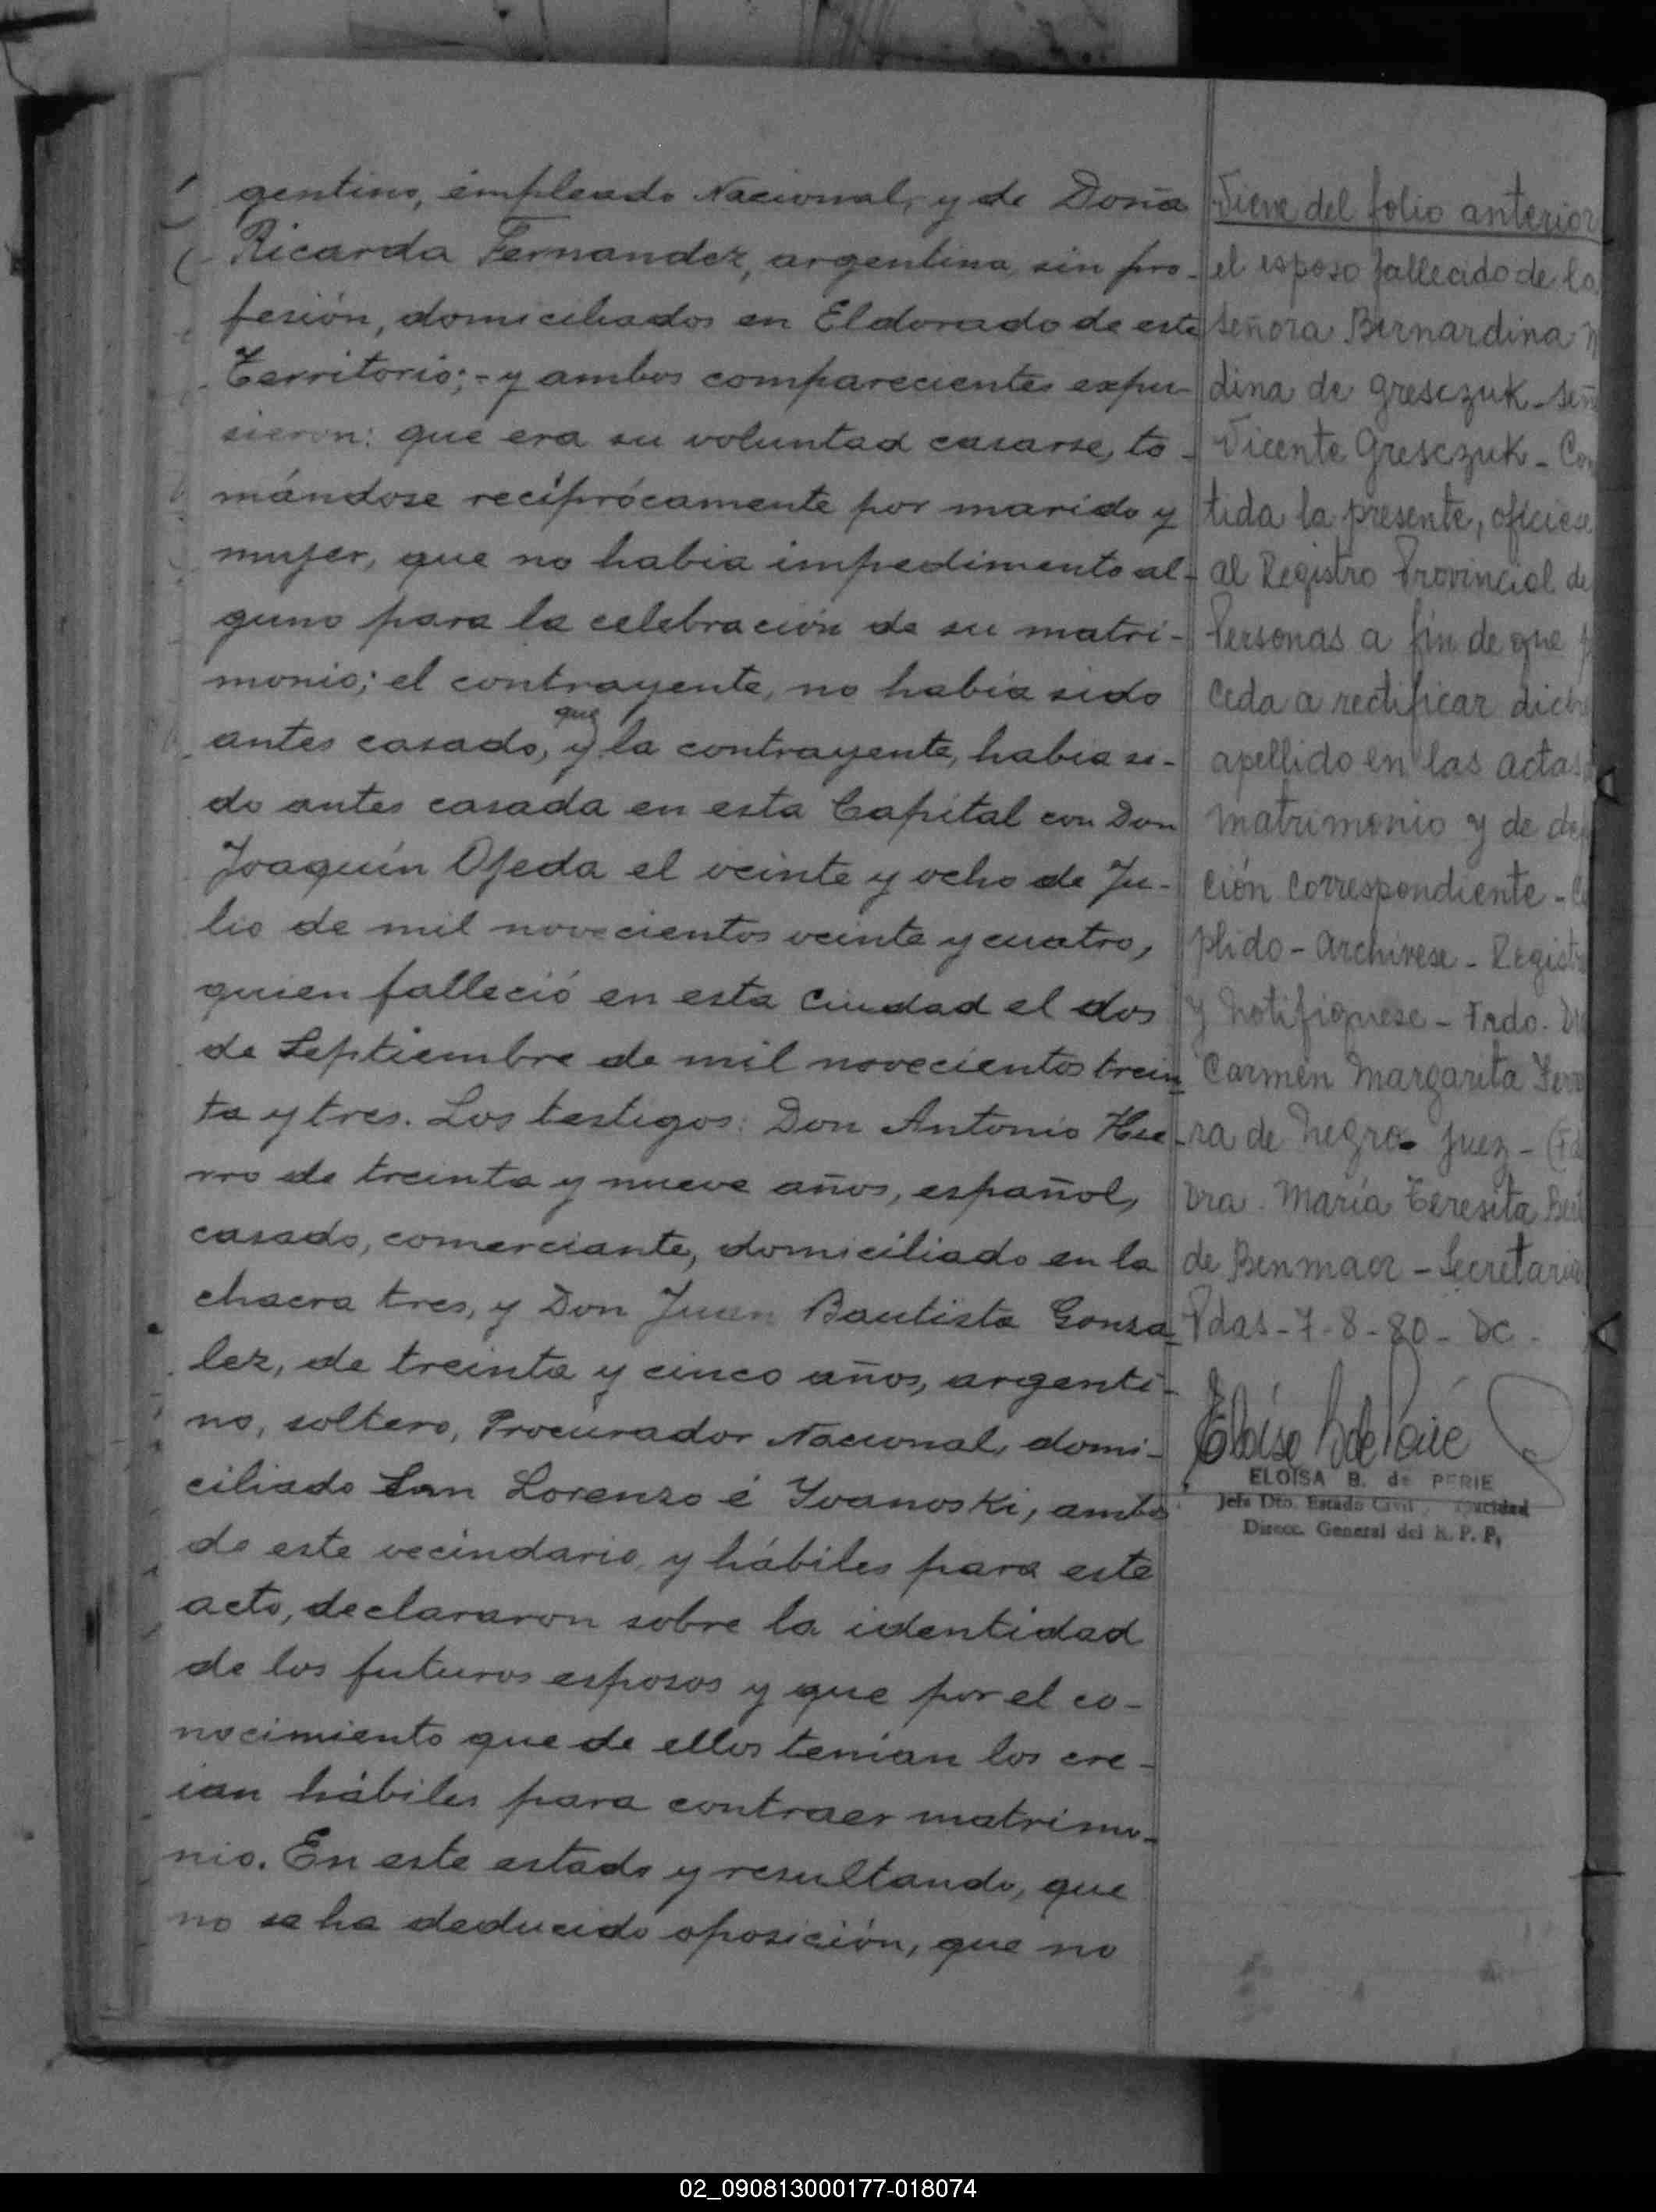 gentino, empleado Nacional, y de Doña
Ricarda Fernandez, argentina, sin pro-
fesión, domiciliados en Eldorado de este
Territorio; - y ambos comparecientes expu-
sieron: que era su voluntad casarse, to-
mándose recíprócamente por marido y
mujer, que no habia impedimento al-
guno para la celebración de su matri-
monio; el contrayente, no había sido
que
antes casado, y la contrayente, habia si-
do antes casada en esta Capital con Don
Joaquín Ojeda el veinte y ocho de Ju-
lio de mil novecientos veinte y cuatro,
quien falleció en esta Ciudad el dos
de Septiembre de mil novecientos trein
ta y tres. Los testigos: Don Antonio Hie-
rro de treinta y nueve años, español,
casado, comerciante, domiciliado en la
chacra tres, y Don Juan Bautista Gonza
lez, de treinta y cinco años, argenti-
no, soltero, Procurador Nacional, domi-
ciliado San Lorenzo é Yvanoski, ambos
de este vecindario, y hábiles para este
acto, declararon sobre la identidad
de los futuros esposos y que por el co-
nocimiento que de ellos tenían los cre-
ian hábiles para contraer matrimo-
nio. En este estado y resultando, que
no se ha deducido oposición, que no
Viene del folio anterior
el esposo fallecido de la
señora Bernardina
dina de Gresczuk - señ
Vicente Gresczuk - Con
tida la presente, ofíciese
al Registro Provincial de
Personas a fin de que
ceda a rectificar dicho
apellido en las actas
matrimonio y de de
ción correspondiente -
plido - archívese - Registr
y notifíquese - Frdo. Dra
Carmen Margarita Ferr
ra de Negro - Juez -
Dra. María Teresita
de Benmaor - Secretaria
Pdas - 7 - 8 - 80 - DC -
ELOISA B. de PERIE
Jefa Dto. Estado Civil
Direcc. General del R. P. P.
02_090813000177-018074